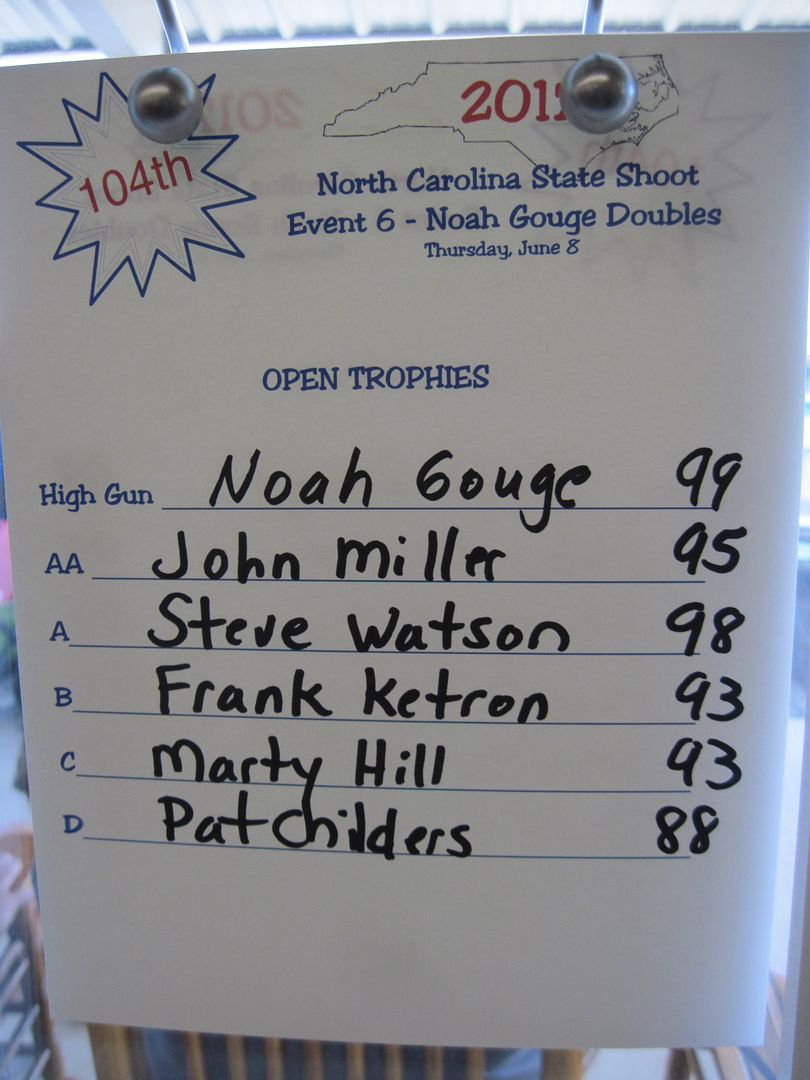 104th
2017
North Carolina State Shoot
Event 6 - Noah Gouge Doubles
Thursday, June 8
OPEN TROPHIES
High Gun Noah Gouge 99
AA John Miller 95
A Steve Watson 98
B Frank Ketron 93
C Marty Hill 93
D Pat Childers 88